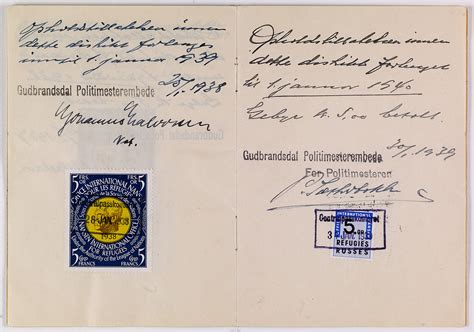 Opholdstillatelsen innen
dette distrikt forlenges
inntil 1. januar 1939
20/1 1938
Gudbrandsdal Politimesterembede
Johannes Halvorsen
OFFICE INTERNATIONAL NANSEN
POUR LES RÉFUGIÉS
5 FRANCS
28 JAN 1938
NANSEN INTERNATIONAL OFFICE
FOR REFUGEES
Under the Authority of the League of Nations
5 FRANCS
Opholdstillatelsen innen
dette distrikt forlenget
til 1. januar 1940
Gebyr kr. 5,00 betalt.
20/1 1939
Gudbrandsdal Politimesterembede
For Politimesteren
INTERNATIONAL
5
RÉFUGIÉS
RUSSES